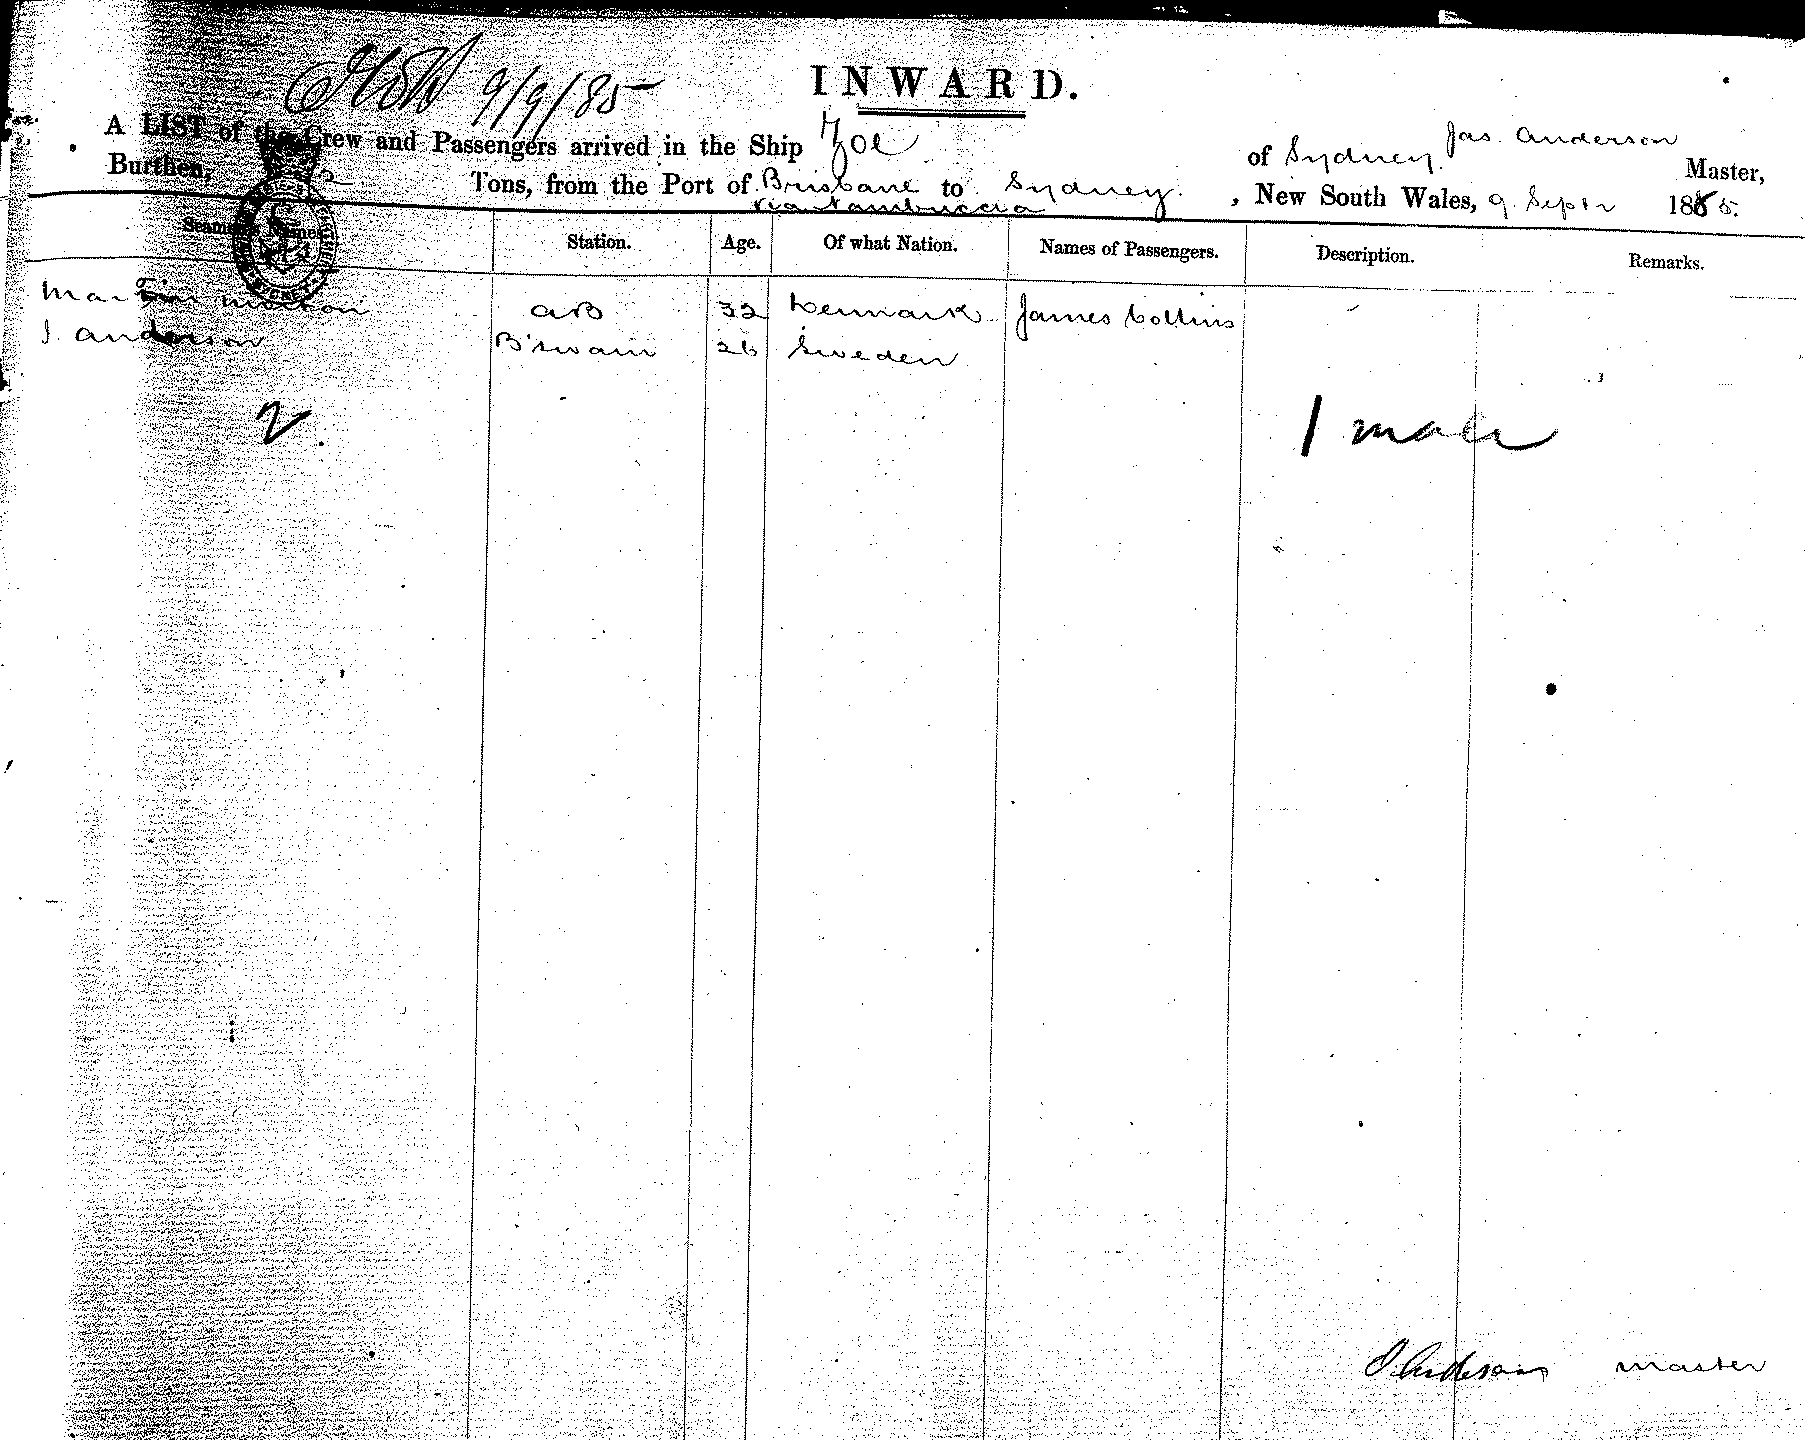 9/9/85
INWARD.
A LIST of the Crew and Passengers arrived in the Ship Zoe of Sydney Jas. Anderson Master,
Burthen, Tons, from the Port of Brisbane to Sydney, New South Wales, 9 Septr 1885.
via Nambucca
Seamen's Names. Station. Age. Of what Nation. Names of Passengers. Description. Remarks.
Martin AB 32 Denmark James Collins
J. Anderson B'swain 26 Sweden
2 1 male
J. Anderson master